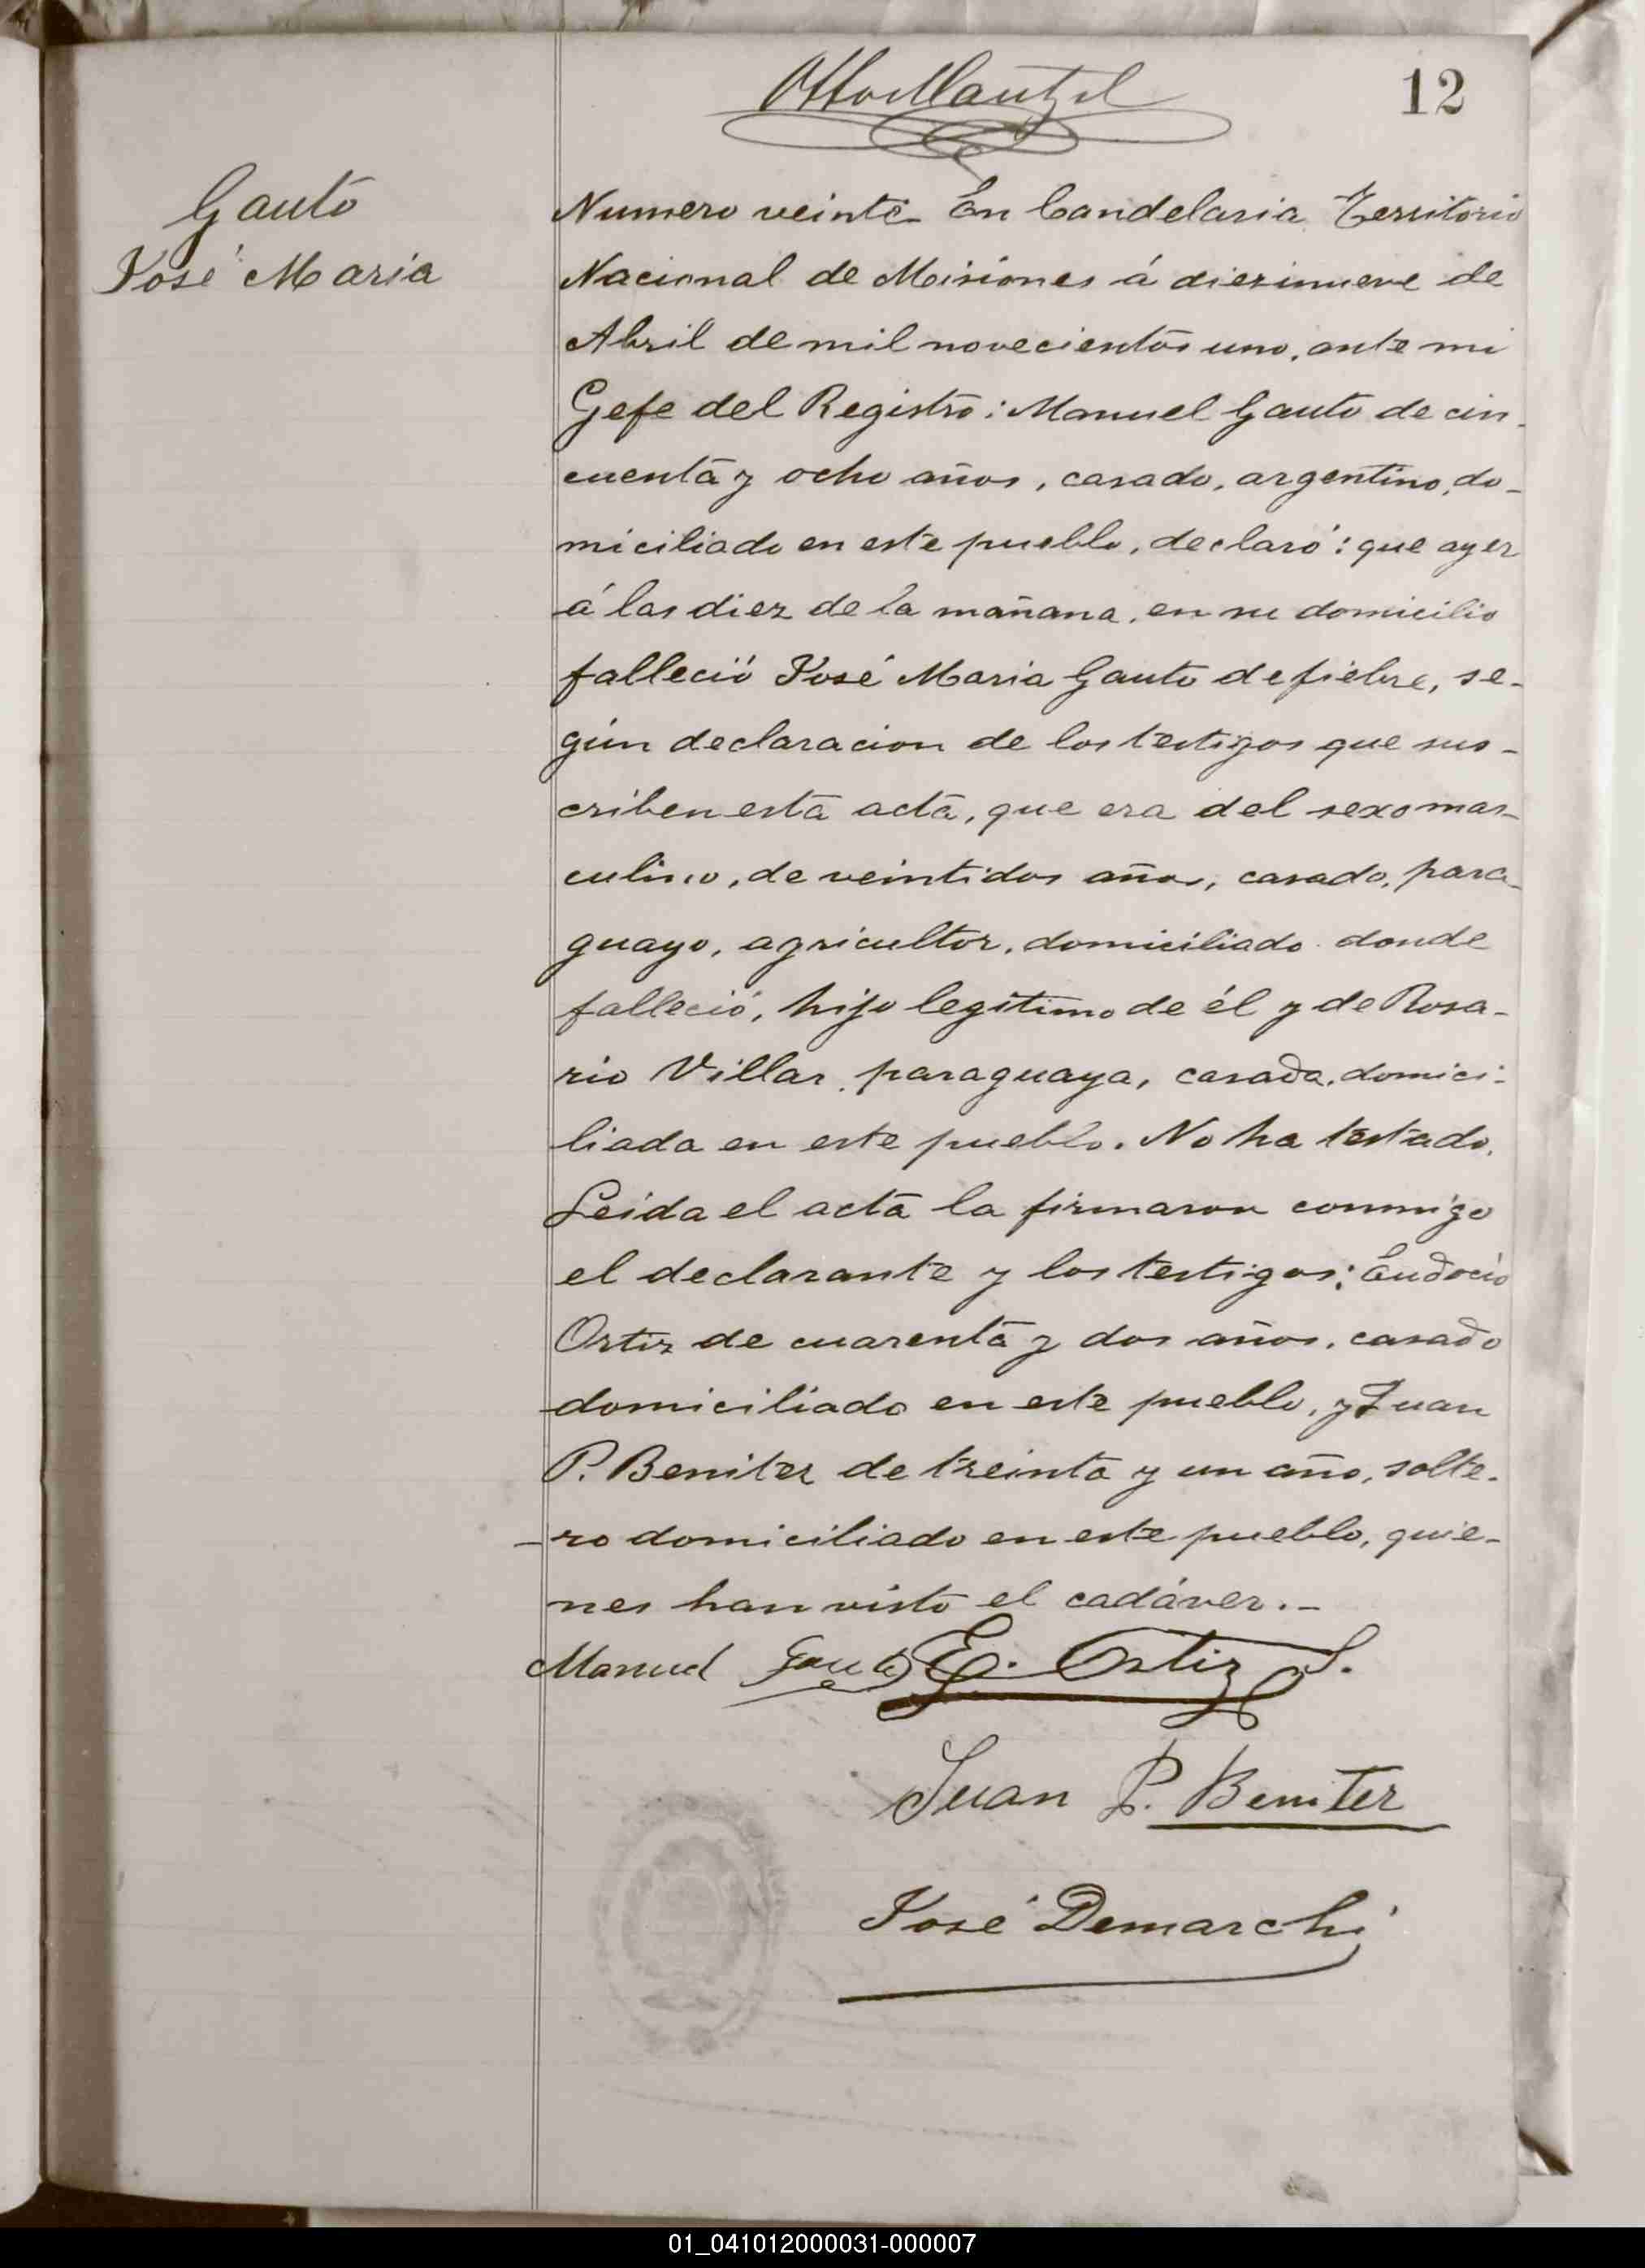 Otto Mantzel
12
Gauto
José Maria
Numero veinte. En Candelaria Territorio
Nacional de Misiones á diezinueve de
Abril de mil novecientos uno, ante mi
Gefe del Registro: Manuel Gauto de cin-
cuenta y ocho años, casado, argentino, do-
miciliado en este pueblo, declaró: que ayer
á las diez de la mañana, en su domicilio
falleció José Maria Gauto de fiebre, se-
gún declaracion de los testigos que sus-
criben esta acta, que era del sexo mas-
culino, de veintidos años, casado, para-
guayo, agricultor, domiciliado donde
falleció, hijo legítimo de él y de Rosa-
rio Villar, paraguaya, casada, domici-
liada en este pueblo. No ha testado.
Leida el acta la firmaron conmigo
el declarante y los testigos: Eudocio
Ortiz de cuarenta y dos años, casado
domiciliado en este pueblo, y Juan
P. Benitez de treinta y un año, solte-
-ro domiciliado en este pueblo, quie-
nes han visto el cadáver.-
Manuel Gauto E. Ortiz S.
Juan P. Benitez
José Demarchi
01_041012000031-000007